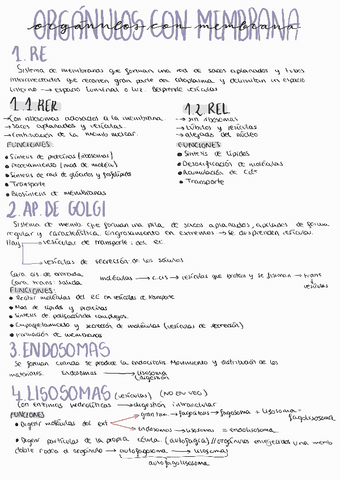 ORGÁNULOS CON MEMBRANA
orgánulos con membrana
1. RE
Sistema de membranas que forman una red de sacos aplanados y tubos
interconectados que recorren gran parte del citoplasma y delimitan un espacio
interno → espacio luminal o luz. Desprende vesículas
1.1 RER
→ Con ribosomas adosados a la membrana
→ Sacos aplanados y vesículas.
→ Continuación de la memb. nuclear.
FUNCIONES
• Síntesis de proteínas (ribosomas)
• Procesamiento (mod de moléc)
• Síntesis de de glúcidos y
• Transporte
• Biosíntesis de membranas
1.2. REL
→ sin ribosomas
→ túbulos y vesículas
→ alejado del núcleo
FUNCIONES
• Síntesis de lípidos
• Desintoxificación de moléculas
• Acumulación de Ca²⁺
• Transporte
2. AP. DE GOLGI
Sistema de memb que forman una pila de sacos aplanados, apilados de forma
regular y característica. Engrosamiento en extremos → se desprenden vesículas.
Hay → vesículas de transporte: del RE
→ vesículas de secreción: de los sáculos
Cara cis: de entrada
Cara trans: salida
moléculas → cis → vesículas que brotan y se fusionan → trans
↓
vesículas
FUNCIONES:
• Recibir moléculas del RE en vesículas de transporte
• Mod de lípidos y proteínas
• Síntesis de polisacáridos complejos.
• Empaquetamiento y secreción de moléculas (vesículas de secreción)
• Formación de membranas
3. ENDOSOMAS
Se forman cuando se produce la endocitosis. Movimiento y distribución de los
materiales. Endosomas → lisosoma
(digestión)
4. LISOSOMAS (vesículas) (NO EN VEG)
Con enzimas hidrolíticas → digestión intracelular
FUNCIONES
• Digerir moléculas del ext
→ gran tam. → fagocitosis → fagosoma + lisosoma =
fagolisosoma
→ endosomas → lisosomas = endolisosoma.
• Digerir partículas de la propia célula (autofagia) // orgánulos envejecidos una memb
doble rodea el orgánulo → autofagosoma → lisosomas
autofagolisosoma